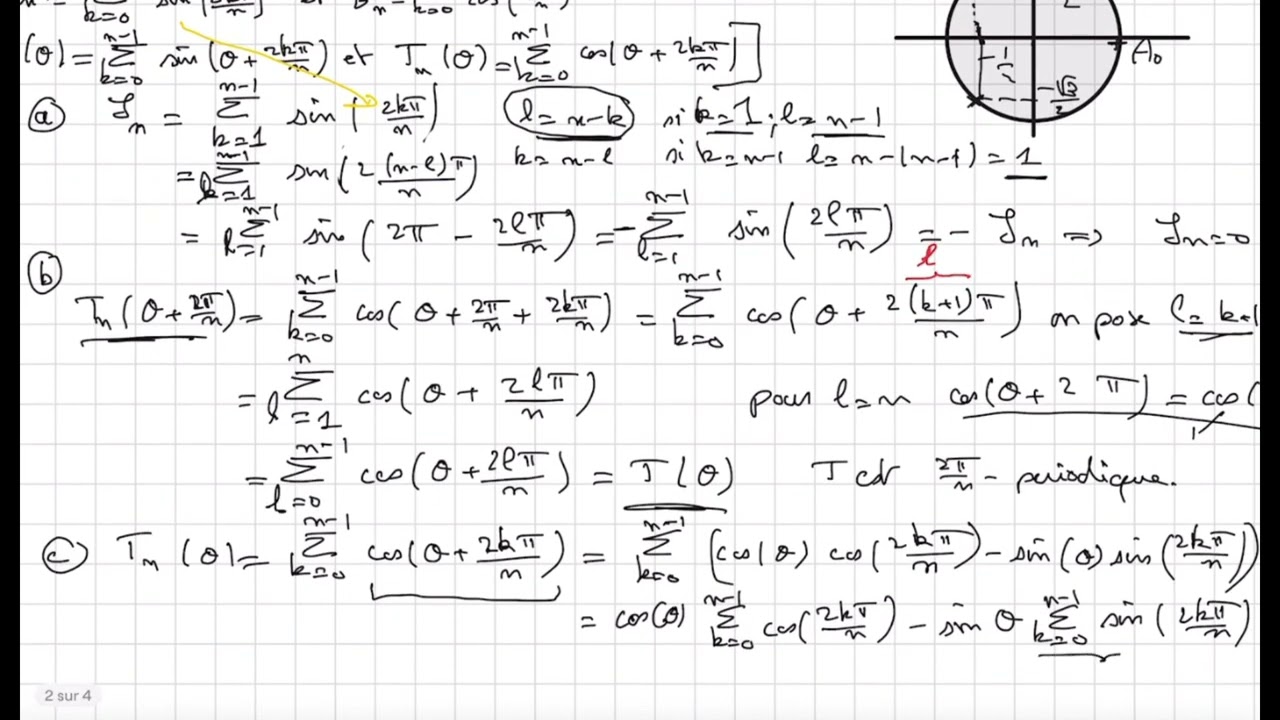 k=0 n k=0 n
(θ) = Σ_{k=0}^{n-1} sin(θ + 2kπ/n) et T_n(θ) = Σ_{k=0}^{n-1} cos(θ + 2kπ/n)]
A₀
-1/2
-√3/2
(a) S_n = Σ_{k=1}^{n-1} sin(2kπ/n) l = n-k si k=1 ; l = n-1
= Σ_{l=1}^{n-1} sin(2(n-l)π/n) k = n-l si k=n-1 l = n-(n-1) = 1
= Σ_{l=1}^{n-1} sin(2π - 2lπ/n) = -Σ_{l=1}^{n-1} sin(2lπ/n) = -S_n ⇒ S_n=0
l
(b) T_n(θ + 2π/n) = Σ_{k=0}^{n-1} cos(θ + 2π/n + 2kπ/n) = Σ_{k=0}^{n-1} cos(θ + 2(k+1)π/n) on pose l = k+1
= Σ_{l=1}^{n} cos(θ + 2lπ/n) pour l=n cos(θ + 2 π) = cos(
= Σ_{l=0}^{n-1} cos(θ + 2lπ/n) = T(θ) T est 2π/n - periodique.
(c) T_n(θ) = Σ_{k=0}^{n-1} cos(θ + 2kπ/n) = Σ_{k=0}^{n-1} (cos(θ) cos(2kπ/n) - sin(θ) sin(2kπ/n))
= cos(θ) Σ_{k=0}^{n-1} cos(2kπ/n) - sin θ Σ_{k=0}^{n-1} sin(2kπ/n)
2 sur 4